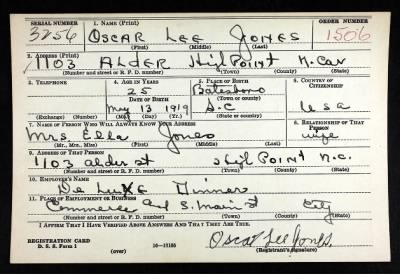 SERIAL NUMBER 1. NAME (Print) ORDER NUMBER
3256 OSCAR LEE JONES 1506
(First) (Middle) (Last)
2. ADDRESS (Print)
1103 ALDER High Point N. Car
(Number and street or R. F. D. number) (Town) (County) (State)
3. TELEPHONE 4. AGE IN YEARS 5. PLACE OF BIRTH 6. COUNTRY OF CITIZENSHIP
25 Batesboro
DATE OF BIRTH (Town or county)
May 13 1919 S.C USA
(Exchange) (Number) (Mo.) (Day) (Yr.) (State or country)
7. NAME OF PERSON WHO WILL ALWAYS KNOW YOUR ADDRESS 8. RELATIONSHIP OF THAT PERSON
Mrs. Ella Jones wife
(Mr., Mrs., Miss) (First) (Middle) (Last)
9. ADDRESS OF THAT PERSON
1103 Alder st High Point N.C.
(Number and street or R. F. D. number) (Town) (County) (State)
10. EMPLOYER'S NAME
De Luxe Dinner
11. PLACE OF EMPLOYMENT OR BUSINESS
Commerce and S. Main st City
(Number and street or R. F. D. number) (Town) (County) (State)
I AFFIRM THAT I HAVE VERIFIED ABOVE ANSWERS AND THAT THEY ARE TRUE.
REGISTRATION CARD
D. S. S. Form 1 (over) 16—17105 Oscar Lee Jones